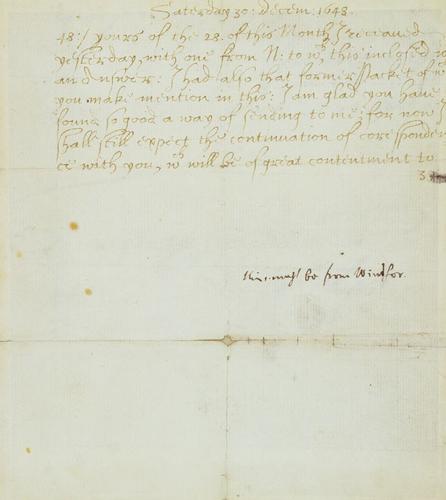 Saterday 30: Decem: 1648
48:/ yours of the 28 of this Month I receaved
yesterday, with one from N: to wch this inclosed is
an answer: I had also that former Packet of
you make mention in this: I am glad you have
found so good a way of sending to me; for now I
shall still expect the continuation of corresponden
ce with you, wch will be of great contentment to
3
this must be from Windsor.